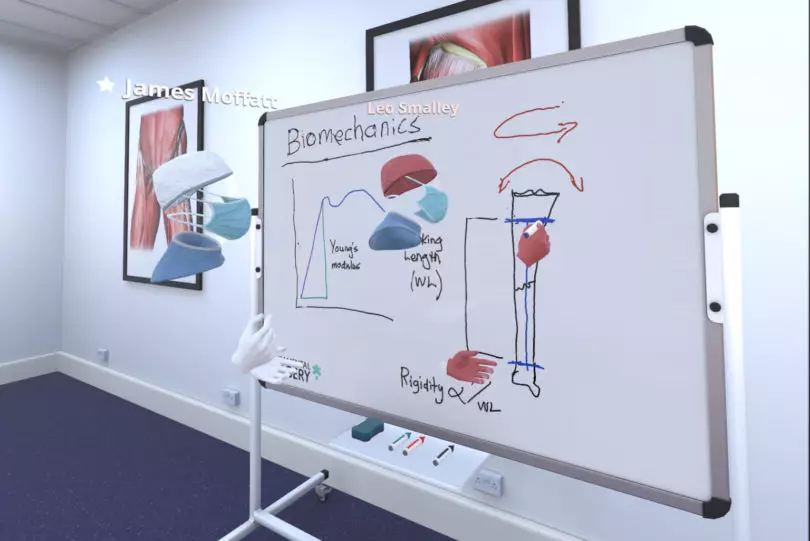 James Moffatt
Leo Smalley
Biomechanics
Young's
modulus
Length
(WL)
Rigidity ∝ / WL